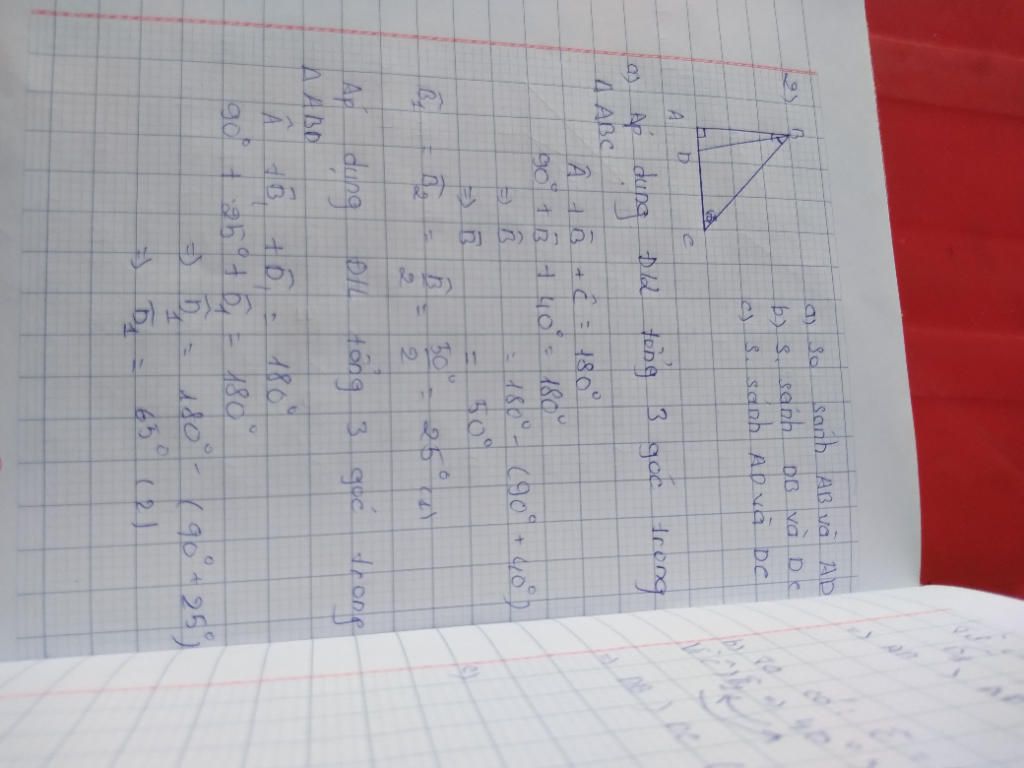 2)
B
A D C
a) so sánh AB và AD
b) s. sánh DB và DC
c) s. sánh AD và DC
a) Áp dụng ĐLí tổng 3 góc trong
Δ ABC
Â + B̂ + Ĉ = 180°
90° + B̂ + 40° = 180°
⇒ B̂ = 180° - (90° + 40°)
⇒ B̂ = 50°
B̂₁ = B̂₂ = B̂/2 = 50°/2 = 25° (1)
Áp dụng ĐLí tổng 3 góc trong
Δ ABD
Â + B̂₁ + D̂₁ = 180°
90° + 25° + D̂₁ = 180°
⇒ D̂₁ = 180° - (90° + 25°)
⇒ D̂₁ = 65° (2)